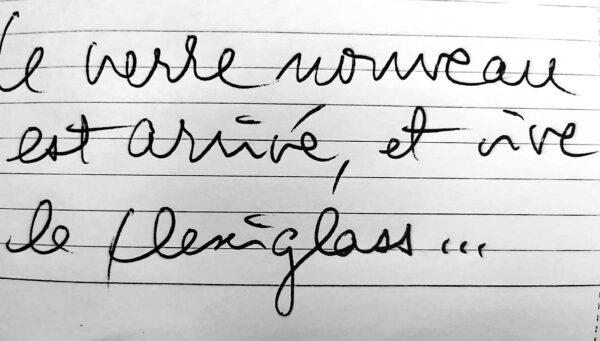 le verre nouveau
est arrivé, et vive
le plexiglass...